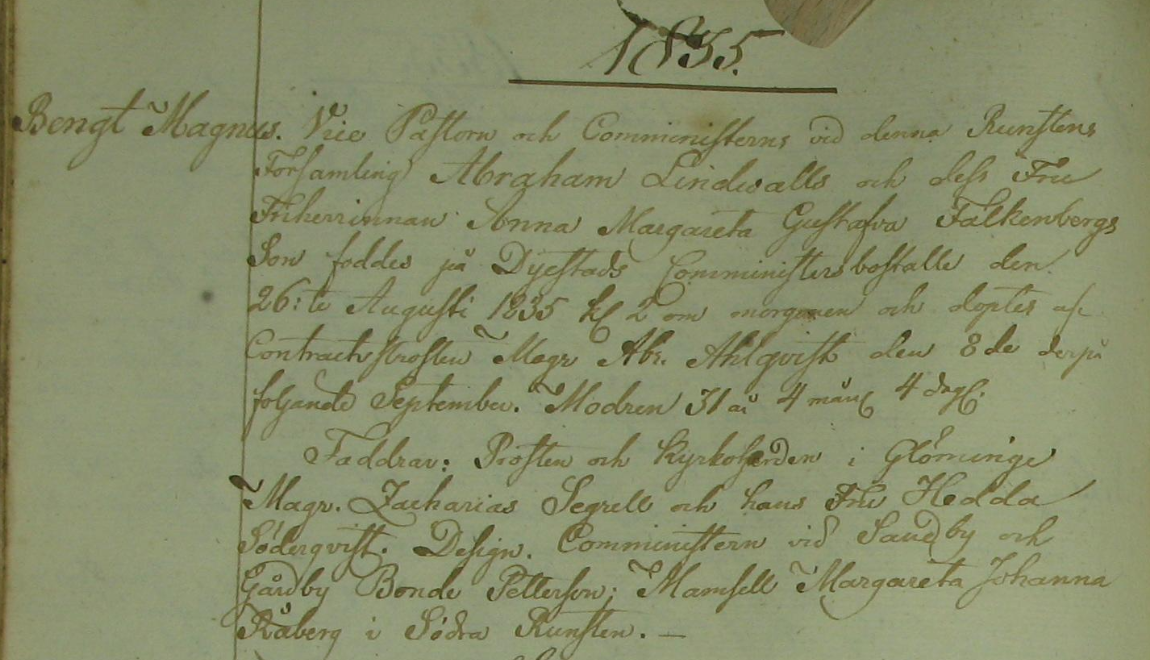 1835.
Bengt Magnus. Vice Pastorn och Comministerns vid denna Runstens
Församling Abraham Lindwalls och dess Fru
Friherrinnan Anna Margareta Gustafva Falkenbergs
Son foddes på Dyestads Comministersbostalle den
26:te Augusti 1835 kl 2 om morgonen och doptes af
Contractsprosten Magr Abr. Ahlqvist den 8de derpå
foljande September. Modren 31 år 4 mån 4 dag.
Faddrar: Prosten och Kyrkoherden i Glömminge
Magr. Zacharias Segrell och hans Fru Hedda
Söderqvist. Design. Comministern vid Sandby och
Gårdby Bonde Petterson; Mamsell Margareta Johanna
Råberg i Södra Runsten. —